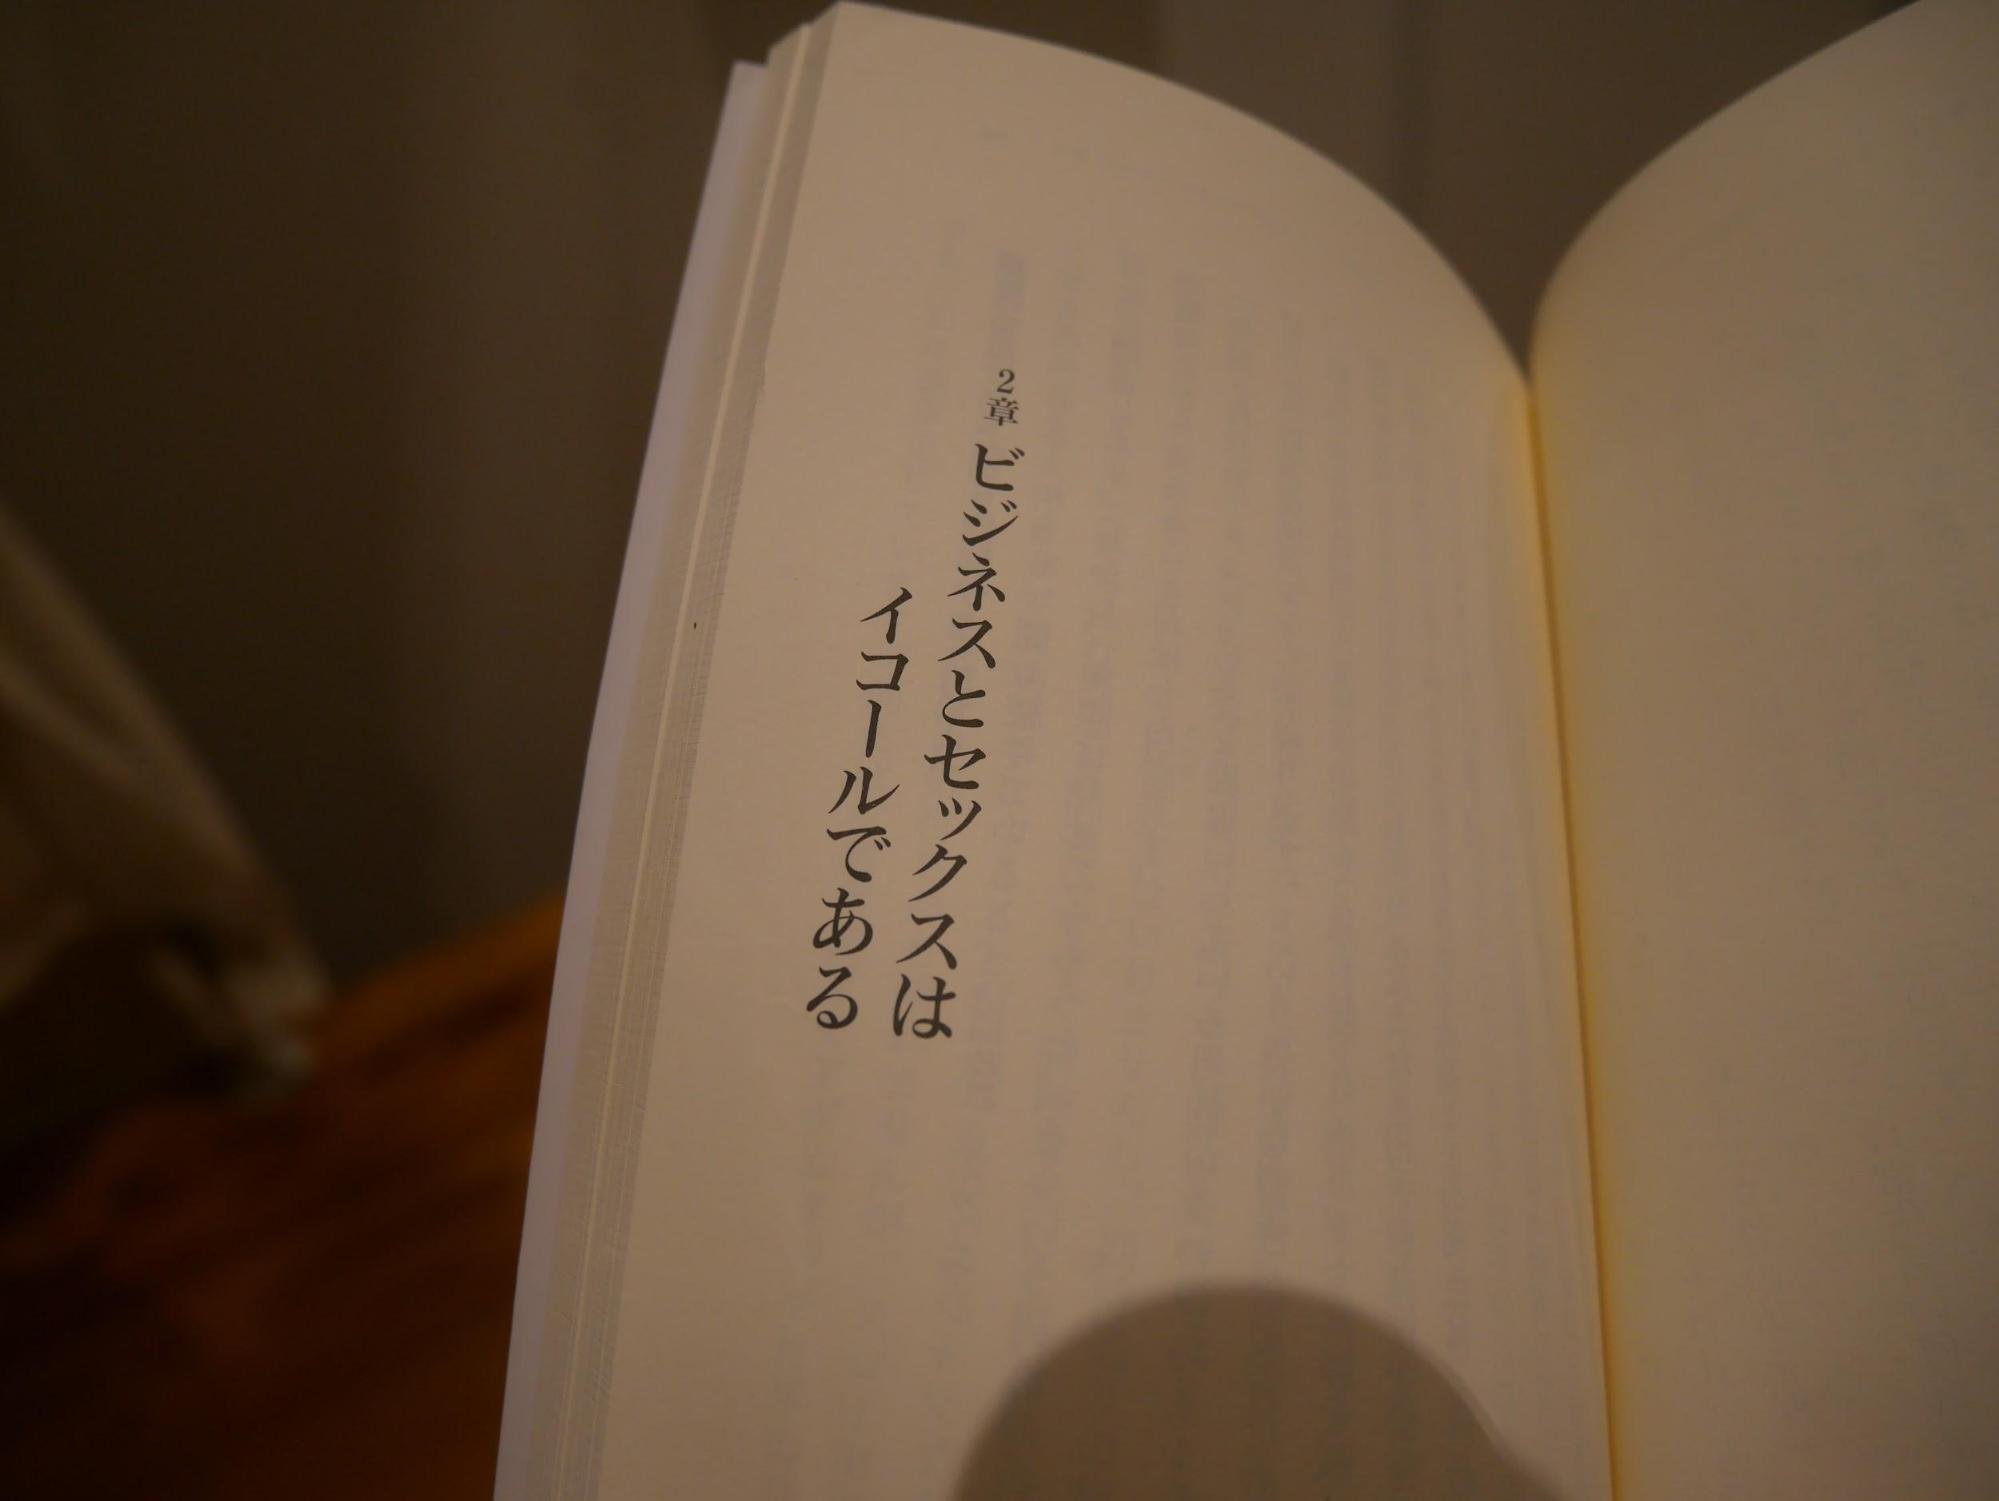 2章 ビジネスとセックスは
イコールである